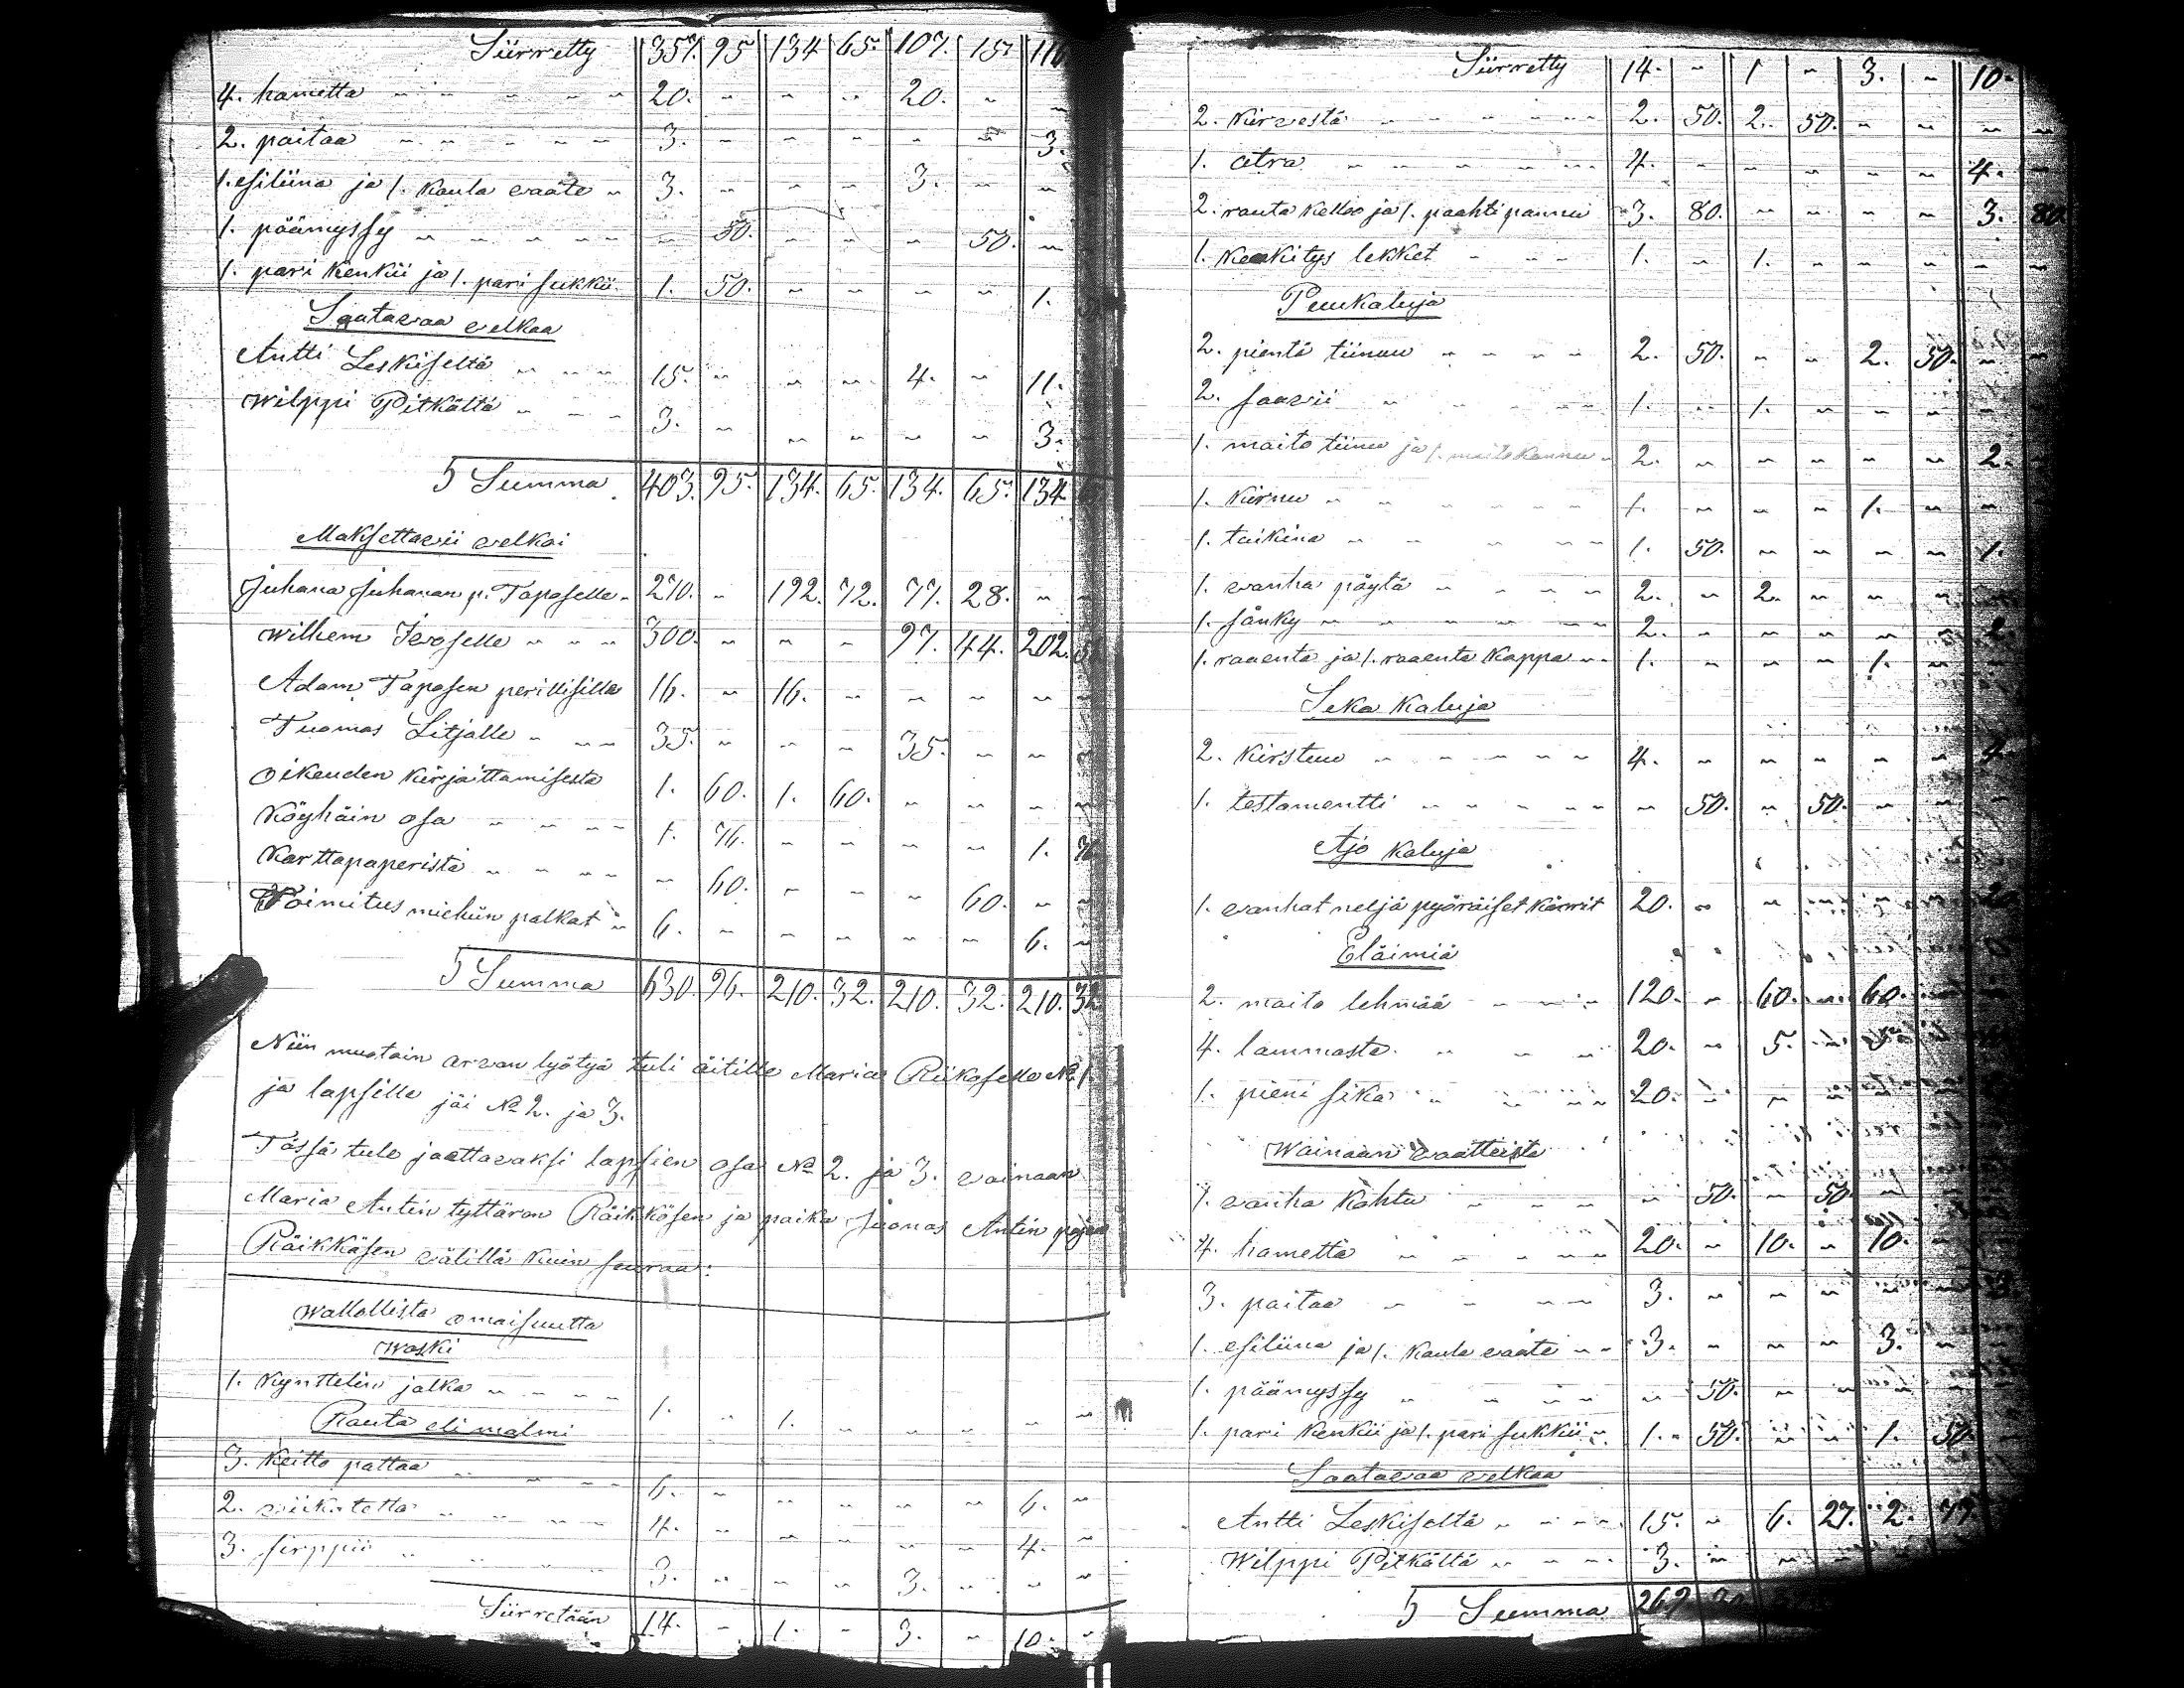 Siirretty 357. 95 134 65. 107. 15. 116
4. hametta " " " " " 20. " " " 20. " "
2. paitaa " " " " " 3. " " " " " 3.
1. esiliina ja 1. kaula vaate " 3. " " " 3. " "
1. päämyssy " " " " " " 50. " " " 50. "
1. pari kenkii ja 1. pari sukkii. 1. 50. " " " " 1.
Saatavaa velkaa
Antti Leskiseltä " " " 15. " " " 4. " 11.
Wilppi Pitkältä " " " 3. " " " " " 3.
Summa 403. 95. 134. 65. 134. 65. 134
Maksettavii velkoi
Juhana Juhanan p. Taposelle " 270. " 192. 72. 77. 28. " "
Wilhem Iivoselle " " " 300. " " " 97. 44. 202.
Adam Taposen perillisille 16. " 16. " " " " "
Tuomas Litjalle " " " 35. " " " 35. " " "
Oikeuden kirjoittamisesta 1. 60. 1. 60. " " " "
Köyhäin osa " " " " 1. 76. " " " " 1. 76
Karttapaperista " " " " " 60. " " " 60. " "
Toimitus miehiin palkat " 6. " " " " " 6. "
Summa 630. 96. 210. 32. 210. 32. 210. 32
Niin muotoin arvan lyötyä tuli äitille Maria Riikoselle No 1.
ja lapsille jäi No 2. ja 3.
Tässä tule jaettavaksi lapsien osa No 2. ja 3. vainaan
Maria Antin tyttären Räikkösen ja poika Juonas Antin pojan
Räikkäsen välillä kuin seuraa:
Wallollista omaisuutta
Waski
1. kynttelin jalka " " " " 1. " 1. " " " " "
Rauta eli malmi
3. keitto pattaa " " " 6. " " " " " 6. "
2. viikatetta " " " " 4. " " " " " 4. "
3. sirppii " " " " 3. " " " 3. " " "
Siirretään 14. " 1. " 3. " 10. "
Siirretty 14. " 1 " 3. " 10.
2. kirvestä " " " " " 2. 50. 2. 50. " " " "
1. atra " " " " " 4. " " " " " 4. "
2. rauta kelloo ja 1. paahti pannu " 3. 80. " " " " 3. 80
1. keskitys lekket " " " 1. " 1. " " " " "
Puukaluja
2. pientä tiinuu " " " " 2. 50. " " 2. 50. " "
2. saavii " " " " 1. " 1. " " " "
1. maito tiinu ja 1. maito kannu " 2. " " " " " 2. "
1. kirnu " " " " " 1. " " " 1. " "
1. taikina " " " " " 1. 50. " " " " 1.
1. vanha pöytä " " " " 2. " 2. " " " "
1. sänky " " " " " 2. " " " " " 2.
1. raaenta ja 1. raaenta kappa " " 1. " " " 1. " "
Seka kaluja
2. kirstuu " " " " " 4. " " " " " 4.
1. testamentti " " " " " 50. " 50. " " "
Ajo kaluja
1. vanhat neljä pyöräiset kärrit 20. " " " " " 20
Eläimiä
2. maito lehmää " " " 120. " 60. " 60. "
4. lammasta " " " 20. " 5. " 5.
1. pieni sika " " " " 20. " " " "
Wainaan vaatteista
1. vanha kohtu " " " " 50. " 50. "
4. hametta " " " " " 20. " 10. " 10. "
3. paitaa " " " " 3. " " " " " 3.
1. esiliina ja 1. kaula vaate " " 3. " " " 3. "
1. päämyssy " " " " " 50. " " "
1. pari kenkii ja 1. pari sukkii " 1. " 50. " " 1. 50
Saatavaa velkaa
Antti Leskiseltä " " " " 15. " 6. 27. 2. 77.
Wilppi Pitkältä " " " " 3. " " "
Summa 269